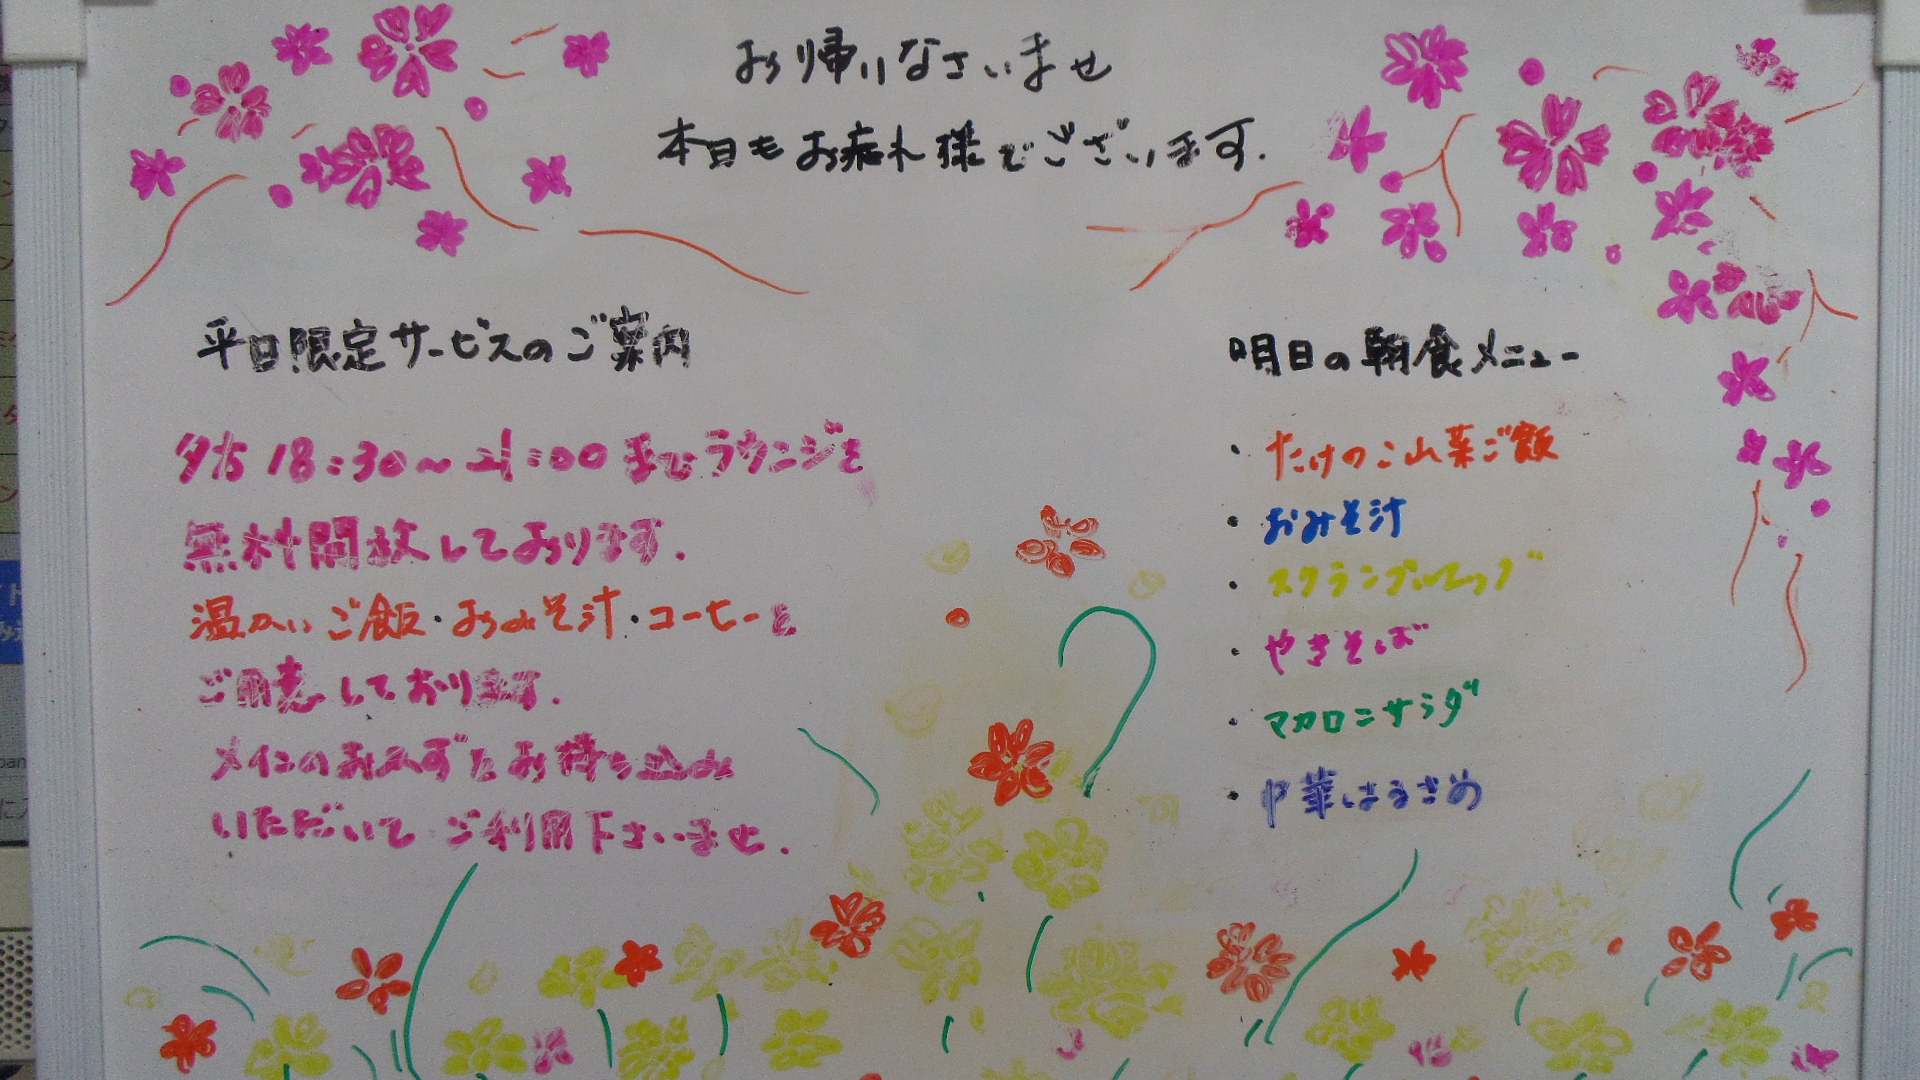 お帰りなさいませ
本日もお疲れ様でございます.
平日限定サービスのご案内
夕方 18:30〜21:00 までラウンジを
無料開放しております.
温かいご飯・おみそ汁・コーヒーを
ご用意しております.
メインのおかずをお持ち込み
いただいて ご利用下さいませ.
明日の朝食メニュー
・たけのこ山菜ご飯
・おみそ汁
・スクランブルエッグ
・やきそば
・マカロニサラダ
・中華はるさめ